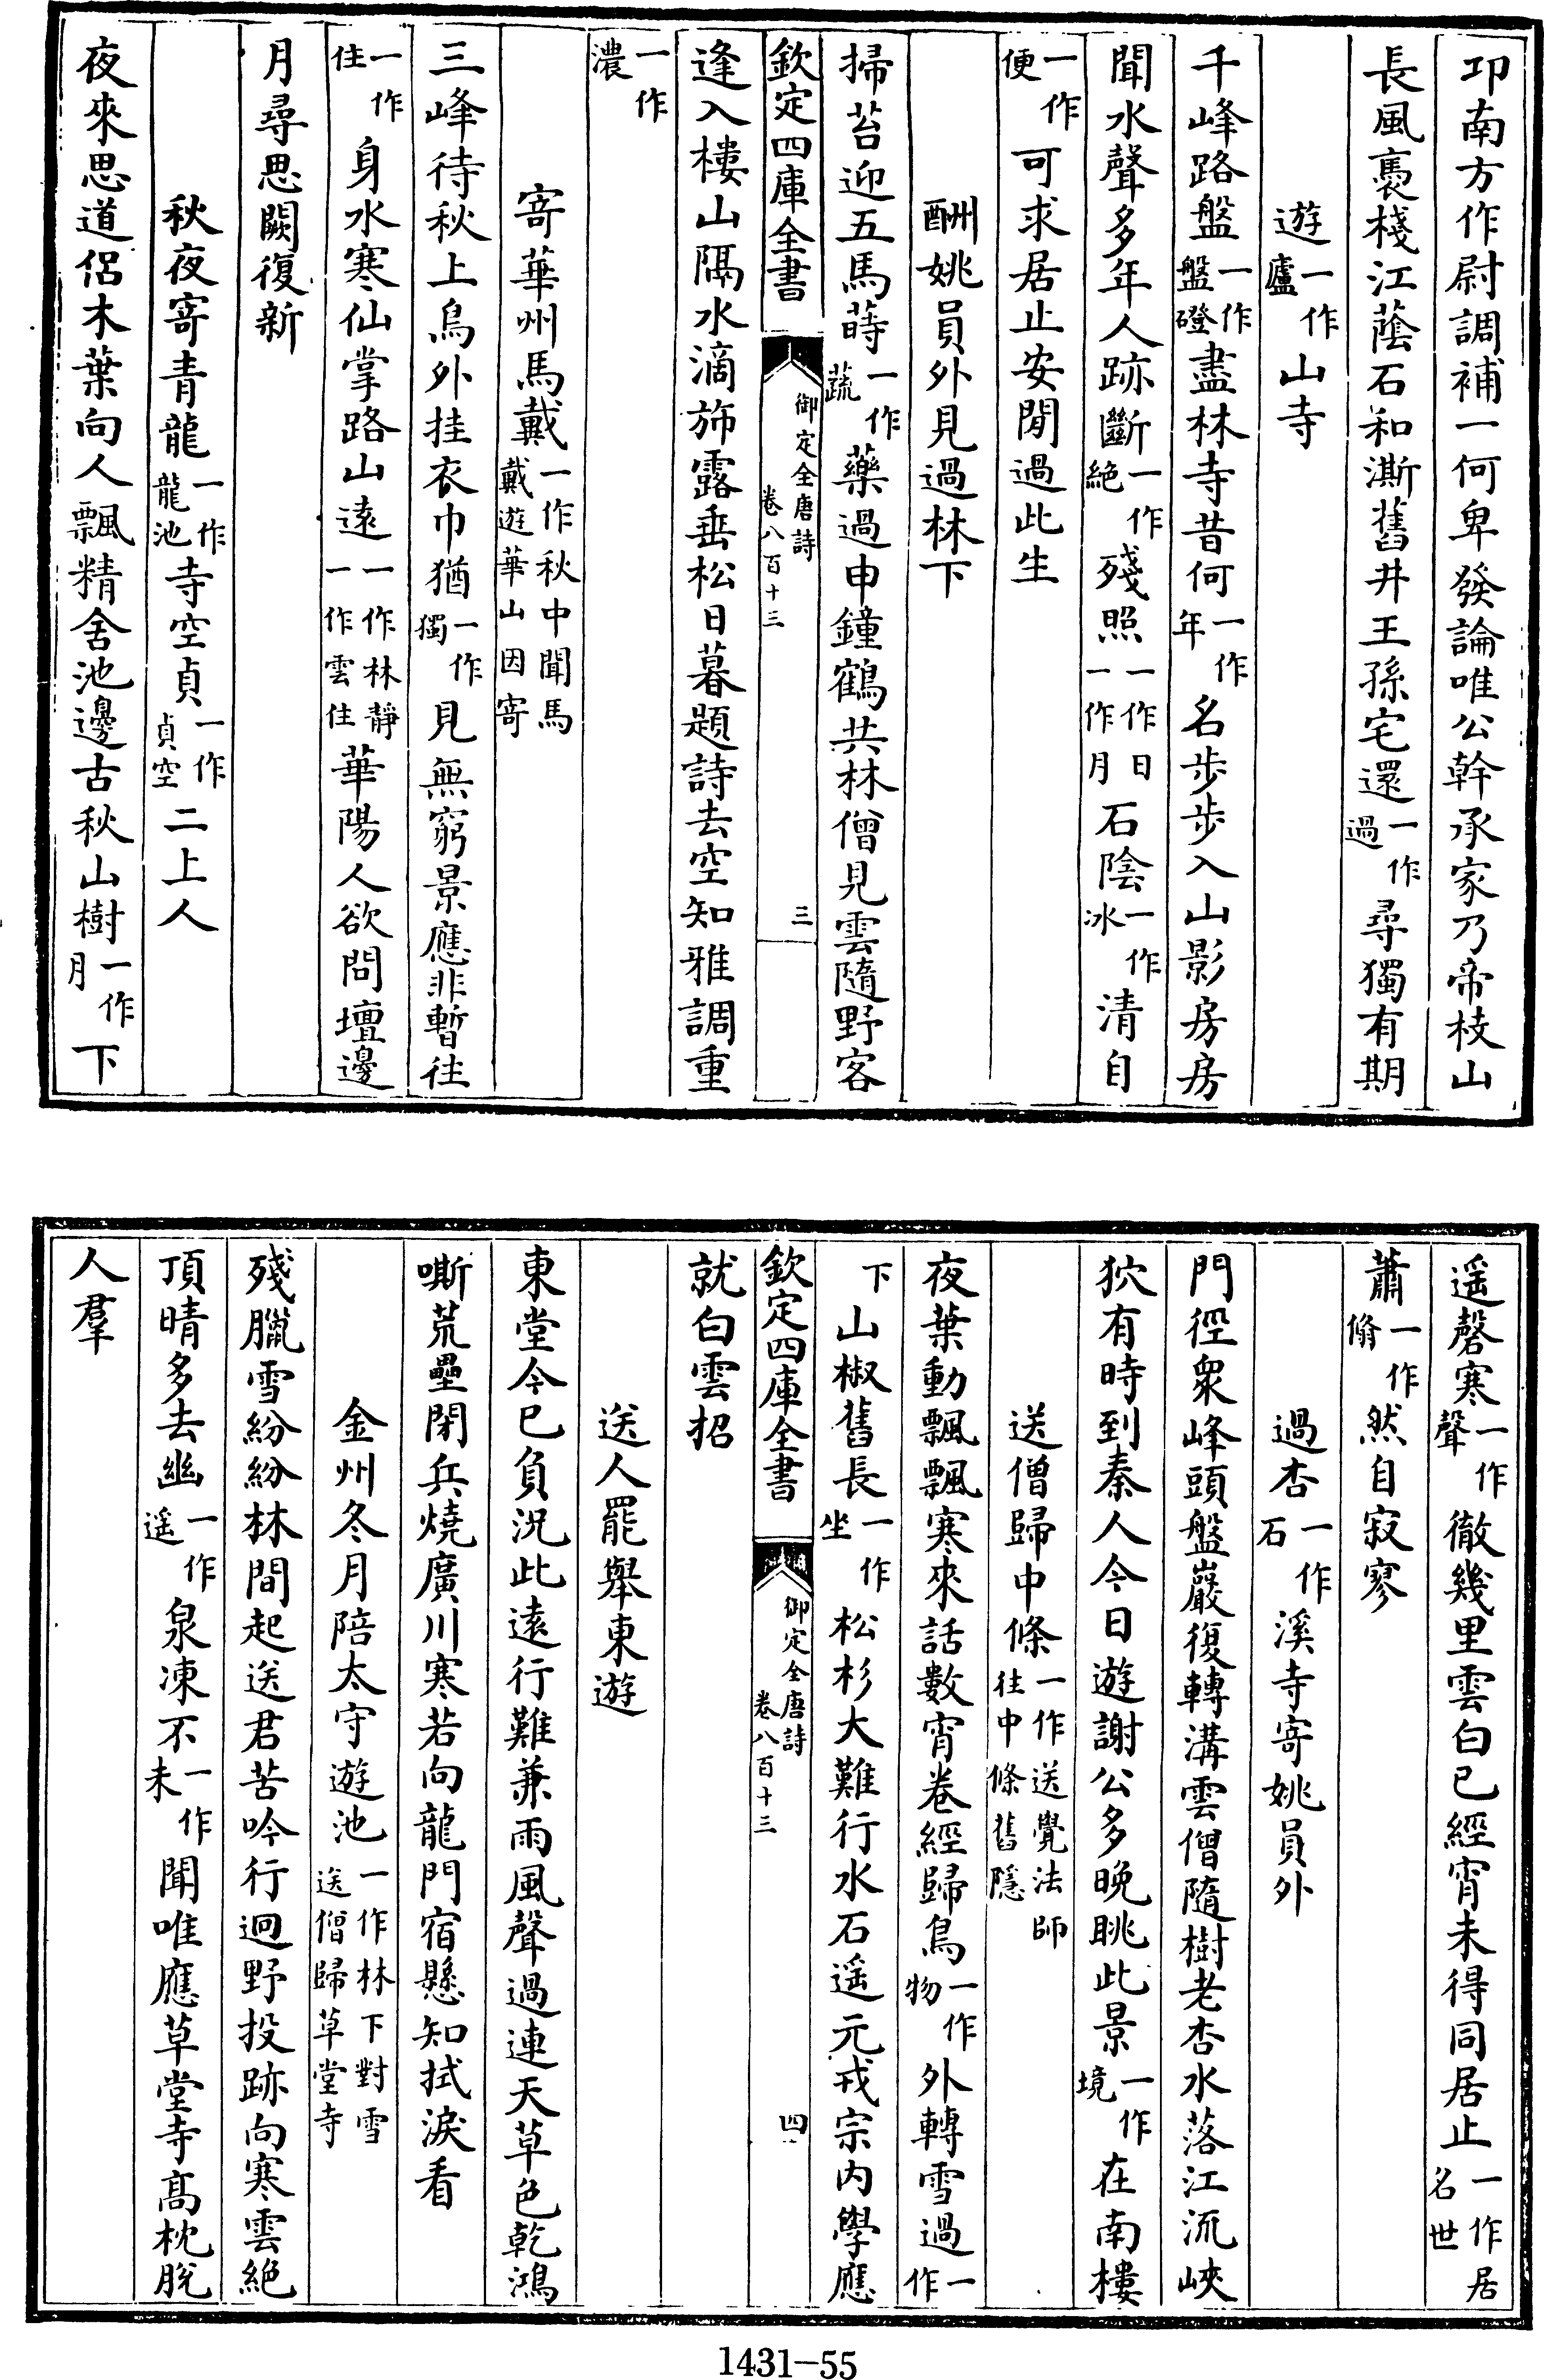 卭南方作尉調補一何卑發論唯公幹承家乃帝枝山
長風褭棧江蔭石和澌舊井王孫宅還一作過尋獨有期
遊一作廬山寺
千峰路盤一作盤磴盡林寺昔何一作年名步步入山影房房
聞水聲多年人跡斷一作絶殘照一作日一作月石陰一作冰清自
一作便可求居止安閒過此生
酬姚員外見過林下
掃苔迎五馬蒔一作蔬藥過申鐘鶴共林僧見雲隨野客
欽定四庫全書 御定全唐詩 卷八百十三 三
逢入樓山隔水滴斾露垂松日暮題詩去空知雅調重
一作濃
寄華州馬戴一作秋中聞馬戴遊華山因寄
三峰待秋上鳥外挂衣巾猶一作獨見無窮景應非暫往
一作住身水寒仙掌路山遠一作林靜一作雲住華陽人欲問壇邊
月尋思闕復新
秋夜寄青龍一作龍池寺空貞一作貞空二上人
夜來思道侶木葉向人飄精舍池邊古秋山樹一作月下
遥磬寒一作聲徹幾里雲白已經宵未得同居止一作居名世
蕭一作翛然自寂寥
過杏一作石溪寺寄姚員外
門徑衆峰頭盤巖復轉溝雲僧隨樹老杏水落江流峽
狖有時到秦人今日遊謝公多晚眺此景一作境在南樓
送僧歸中條一作送覺法師往中條舊隱
夜葉動飄飄寒來話數宵卷經歸鳥一作物外轉雪過一作
下山椒舊長一作坐松杉大難行水石遥元戎宗内學應
欽定四庫全書 御定全唐詩 卷八百十三 四
就白雲招
送人罷舉東遊
東堂今已負況此遠行難兼雨風聲過連天草色乾鴻
嘶荒壘閉兵燒廣川寒若向龍門宿懸知拭淚看
金州冬月陪太守遊池一作林下對雪送僧歸草堂寺
殘臘雪紛紛林間起送君苦吟行迥野投跡向寒雲絶
頂晴多去幽一作遥泉凍不一作未聞唯應草堂寺髙枕脫
人羣
1431-55